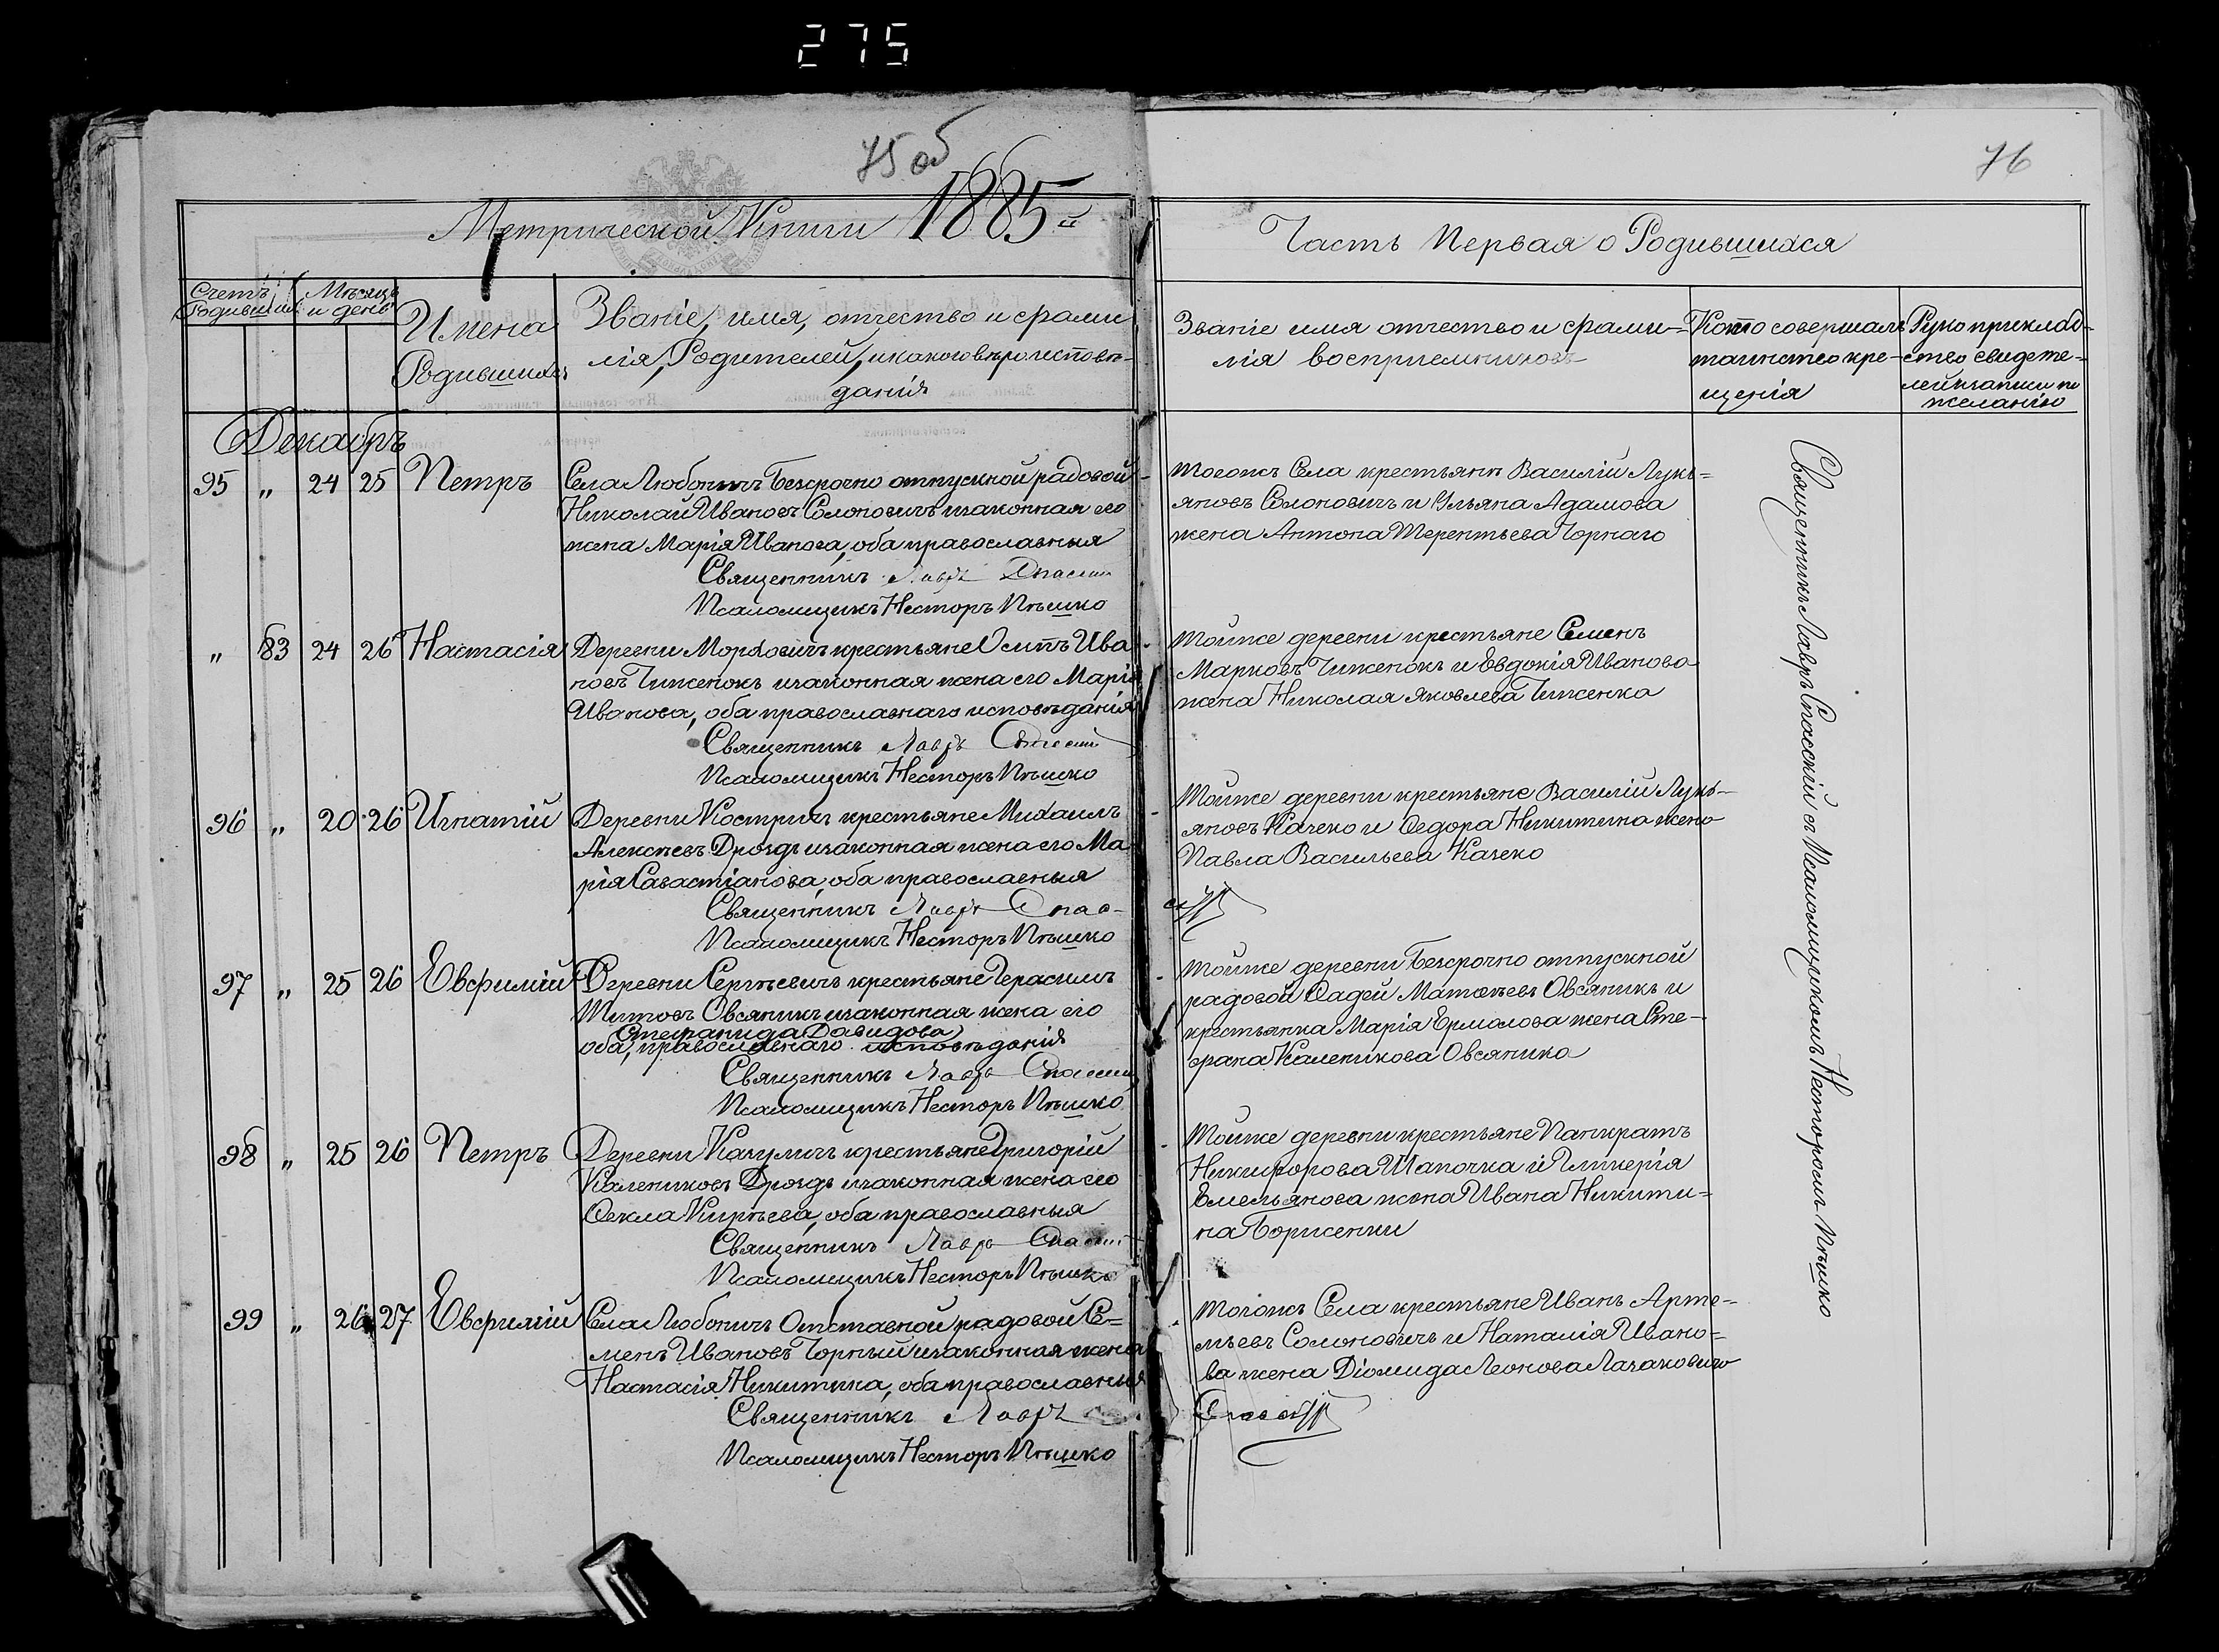 275
75 об
76
Метрической Книги 1885й
Часть Первая о Родившихся
Счетъ Родившихся
Мѣсяцъ и день
Имена Родившихъ
Званіе, имя, отчество и фами
лія, Родителей, и какого вѣроисповѣ-
данія
Званіе имя отчество и фами-
лія воспріемниковъ
Кто совершалъ
таинство кре-
щенія
Рукоприклад-
ство свидѣте-
лей записи по
желанію
Декабрь
95 „ 24 25 Петръ
Села Любоничъ Безсрочно отпускной рядовой
Николай Ивановъ Солоновичъ изаконная его
жена Марія Иванова, оба православныя
Священникъ Лавръ Спасскій
Псаломщикъ Несторъ Пѣшко
Тогожъ Села крестьяни Василій Лукь-
яновъ Солоновичъ и Ульяна Адамова
жена Антона Терентьева Чорнаго
„ 83 24 26 Настасія
Деревни Морховичъ крестьяне Осипъ Ива
новъ Чиженокъ изаконная жена его Марія
Иванова, оба православнаго исповѣданія
Священникъ Лавръ Спасскій
Псаломщикъ Несторъ Пѣшко
Тойже деревни крестьяне Семенъ
Марковъ Чиженокъ и Евдокія Иванова
жена Николая Яковлева Чиженка
96 „ 20 26 Игнатій
Деревни Костричъ крестьяне Михаилъ
Алексѣевъ Дроздъ изаконная жена его Ма
рія Савастіанова, оба православныя
Священникъ Лавръ Спас-
Псаломщикъ Несторъ Пѣшко
Тойже деревни крестьяне Василій Лукь-
яновъ Качеко и Ѳедора Никитина жена
Павла Васильева Качеко
97 „ 25 26 Евфимій
Деревни Сергѣевичъ крестьяне Герасимъ
Титовъ Овсяникъ изаконная жена его
Стефанида Давидова
оба, православнаго исповѣданія
Священникъ Лавръ Спасскій
Псаломщикъ Несторъ Пѣшко
Тойже деревни Безсрочно отпускной
рядовой Ѳадей Матвѣевъ Овсяникъ и
крестьянка Марія Ермолова жена Сте-
фана Каленикова Овсяника
98 „ 25 26 Петръ
Деревни Качуличъ крестьяне Григорій
Калениковъ Дроздъ изаконная жена его
Ѳекла Кирѣева, оба православныя
Священникъ Лавръ Спасскій
Псаломщикъ Несторъ Пѣшко
Тойже деревни крестьяне Панкратъ
Никифорова Шапочка и Гликерія
Емельянова жена Ивана Никити-
на Борисенки
99 „ 26 27 Евфимій
Села Любоничъ Отставной рядовой Се-
менъ Ивановъ Чорный изаконная жена
Настасія Никитина, оба православныя
Священникъ Лавръ
Псаломщикъ Несторъ Пѣшко
Тогожъ Села крестьяне Иванъ Арте-
мьевъ Солоновичъ и Наталія Ивано-
ва жена Діомида Леонова Лазаковича
Священникъ Лавръ Спасскій съ Псаломщикомъ Несторомъ Пѣшко